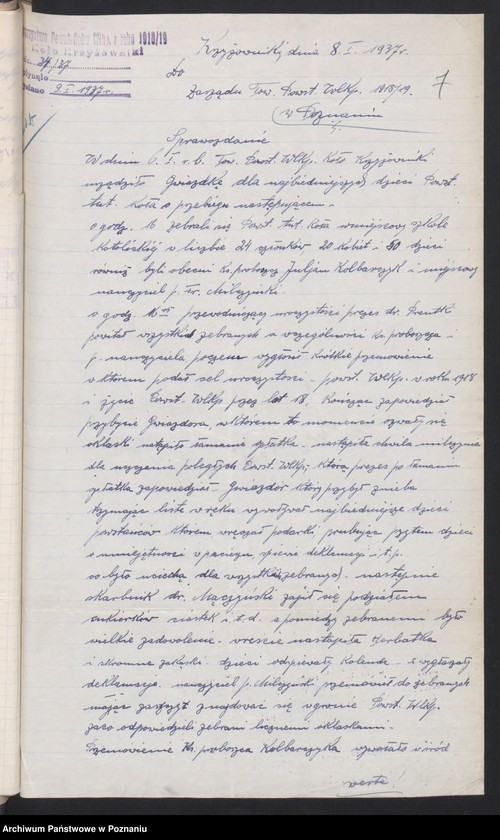 Towarzystwo Powstańców Wlkp. z roku 1918/19
Koło Krzyżowniki
34/37
9.I.1937r.
Krzyżowniki, dnia 8.I.1937r.
7
Do
Zarządu Tow. Powst. Wlkp. 1918/19.
w Poznaniu
Sprawozdanie
W dniu 6.I. r.b. Tow. Powst. Wlkp. Koło Krzyżowniki
urządziło Gwiazdkę dla najbiedniejszej dzieci Powst.
tut. Koła o przebiegu następującem.
o godz. 16 zebrali się Powst. tut. Koła w miejscowej szkole
Katolickiej w liczbie 24 członków, 20 kobiet i 50 dzieci
również byli obecni ks. proboszcz Juljan Kolbarczyk i miejscowy
nauczyciel p. Fr. Milczyński.
o godz 16 przewodniczący uroczystości prezes dr.
powitał wszystkich zebranych a w szczególności ks. proboszcza i
p. nauczyciela poczem wygłosił krótkie przemówienie
w którem podał cel uroczystości powst. Wlkp. w roku 1918
i życie Powst. Wlkp przez lat 18, kończąc zapowiedział
przybycie Gwiazdora, w którem to momencie ozwały się
oklaski nastąpiło łamanie opłatka nastąpiła chwila milczenia
dla uczczenia poległych Powst. Wlkp; którą prezes po łamaniu
opłatka zapowiedział Gwiazdor który przybył z nieba
trzymając listę w ręku wywoływał najbiedniejsze dzieci
powstańców którem wręczał podarki próbując przytem dzieci
o umiejętności w pacierzu, śpiewie deklamacji i t.p.
co było uciechą dla wszystkich zebranych. następnie
skarbnik dr. Mączyński zajął się podziałem
cukierków ciastek i t.d. a pomiędzy zebranemi było
wielkie zadowolenie. wreszcie nastąpiła herbatka
i skromne zakąski. dzieci odśpiewały kolende i wygłaszały
deklamacje nauczyciel p. Milczyński przemówił do zebranych
mając zaszczyt znajdować się w gronie Powst. Wlkp.
zaco odpowiedzieli zebrani licznemi oklaskami.
Przemówienie ks. proboszcza Kolbarczyka wywołało wśród
verte!
Archiwum Państwowe w Poznaniu